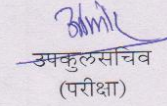 उपकुलसचिव
(परीक्षा)